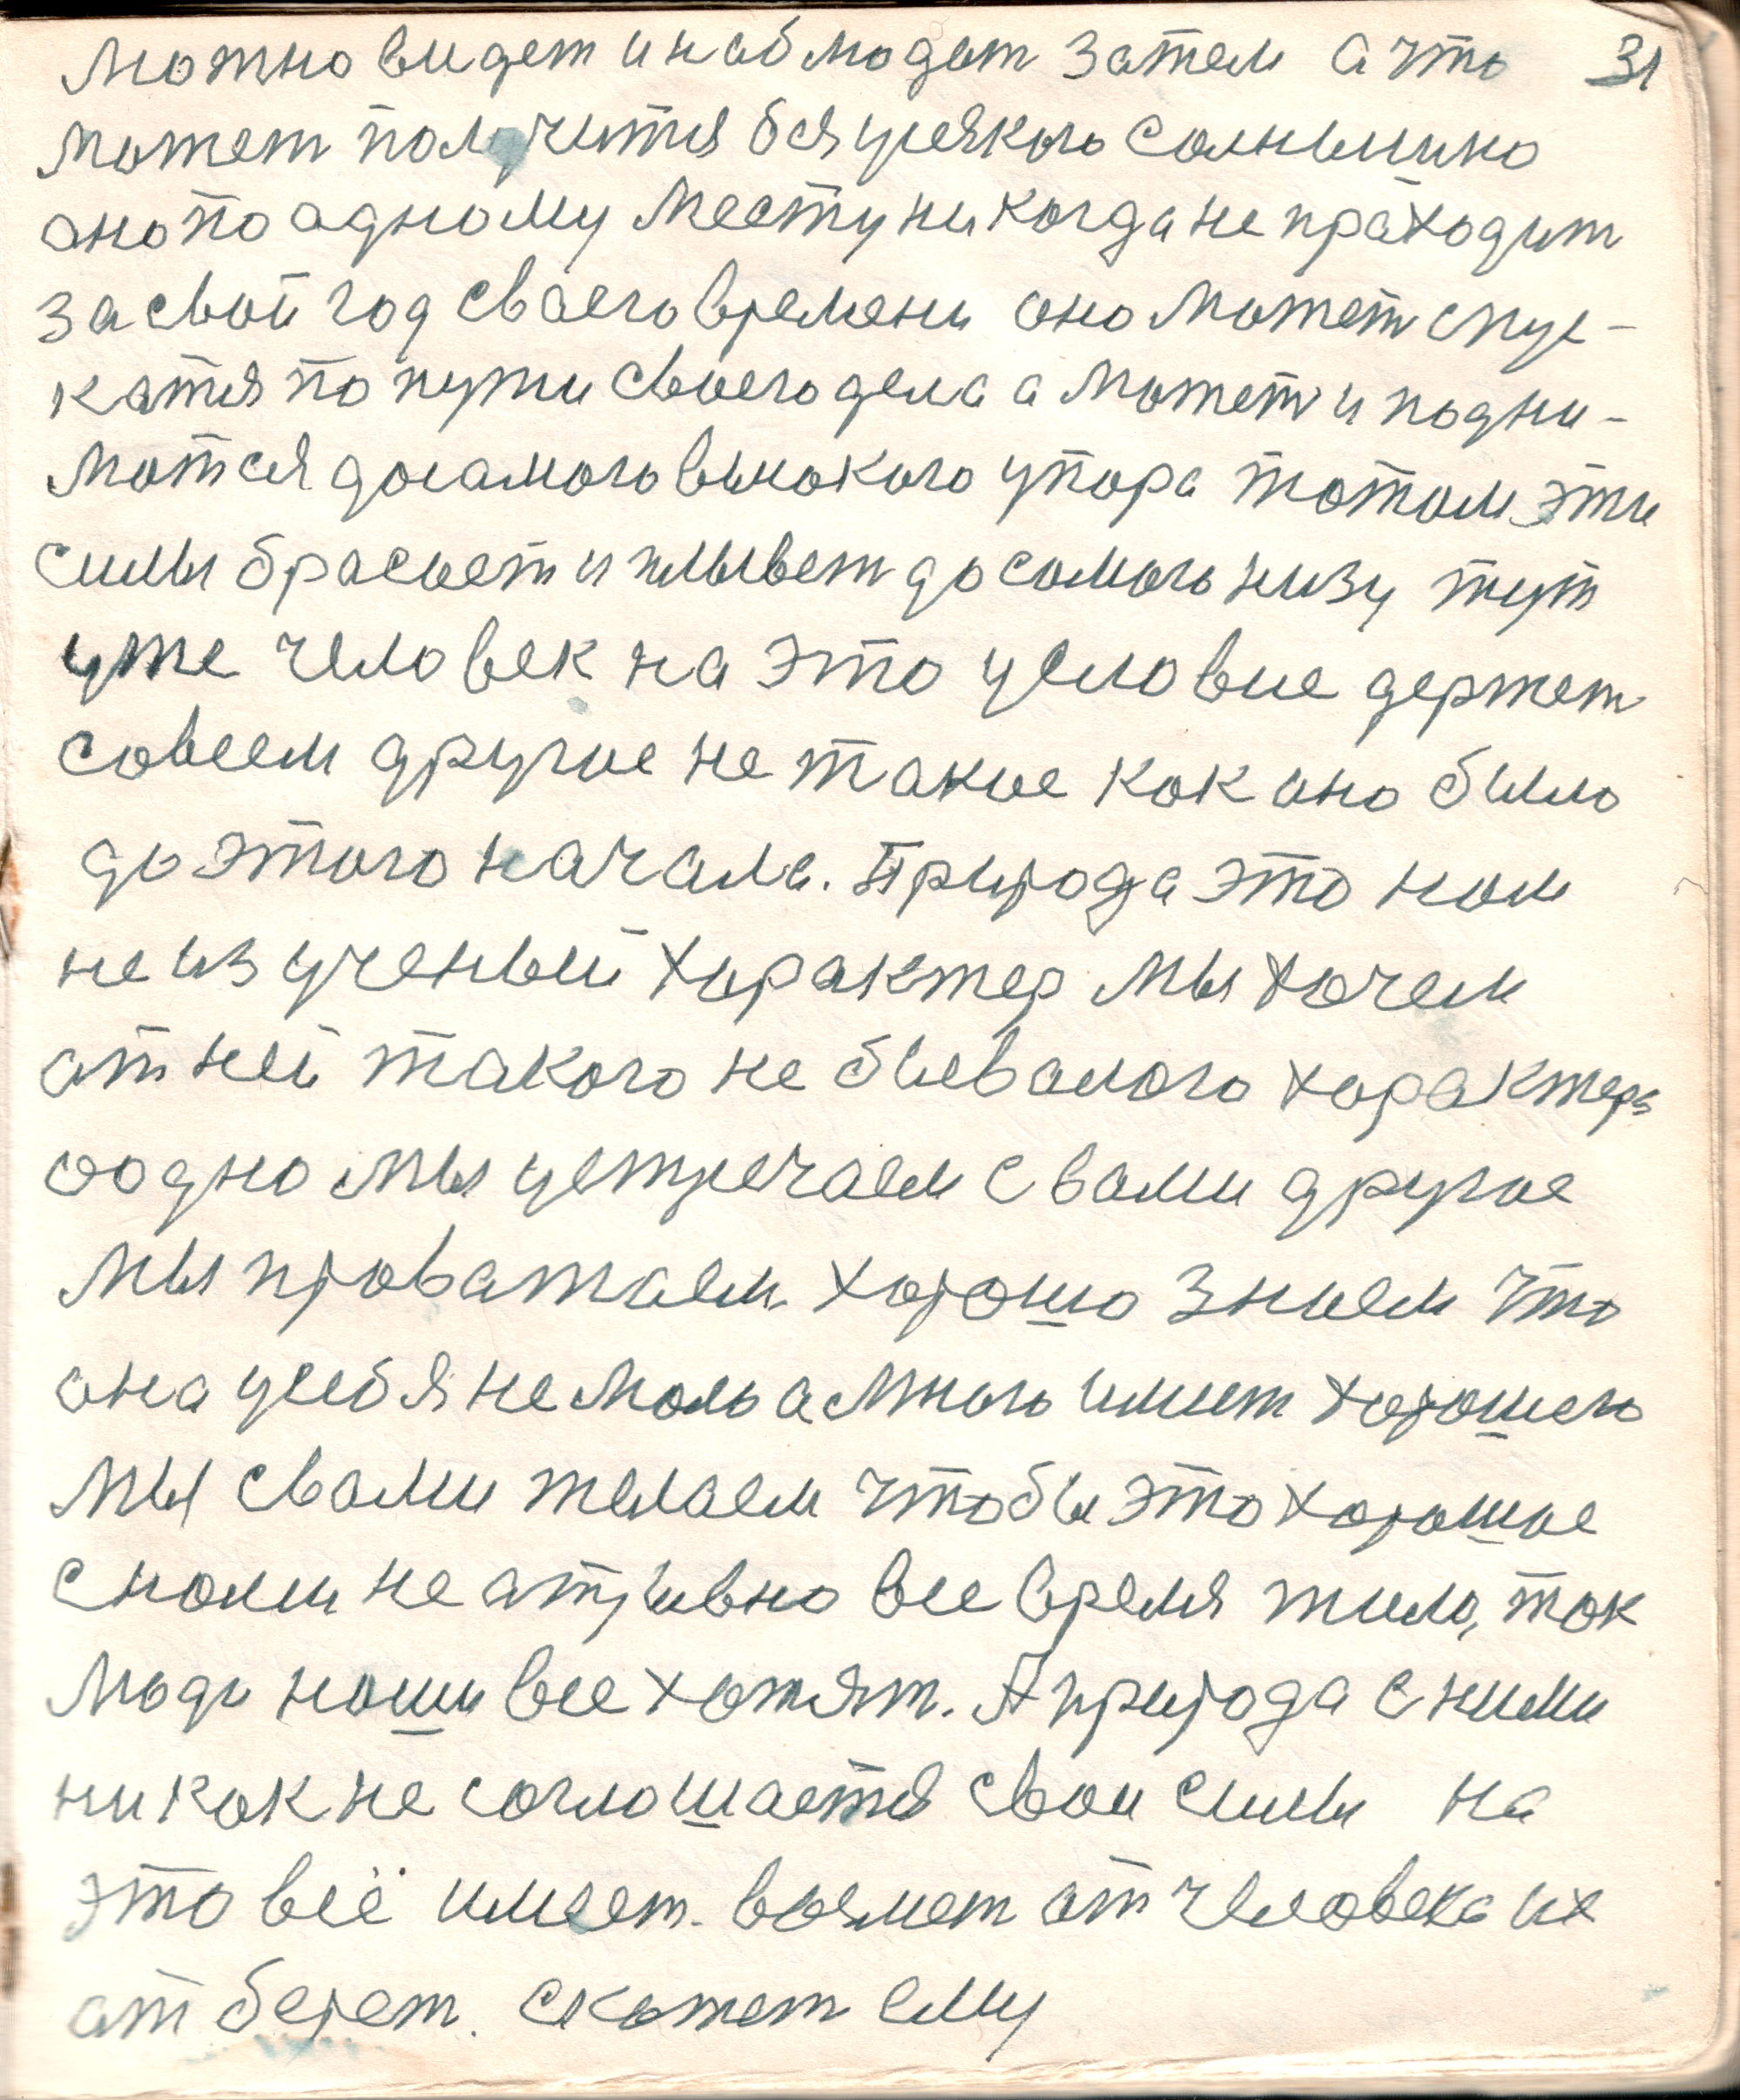 можно видет и наблюдат затем а что 31
может получится бея усякого солнышко
оно по адному месту никогда не праходит
за свой год сваего времени оно может спус-
катся по пути своего дела а может и подни-
мотся до самого высокого упора то том эти
силы брасает и плывет до самого низу тут
уже человек на это условие держет
совсем другое не такое как оно было
до этого начала. Природа это нам
не изученый характер мы хочем
от ней такого не бывалого характера
оодно мы устречаем с вами другое
мы проважаем. хорошо знаем что
она у себя не мало а много имеет хорошего
мы с вами желаем чтобы это хорошое
с нами не атрывно все время жило, так
люди наши все хотят. А природа с ними
никак не соглошается свои силы на
это всё имеет. возмет от человека их
атберет. скажет ему